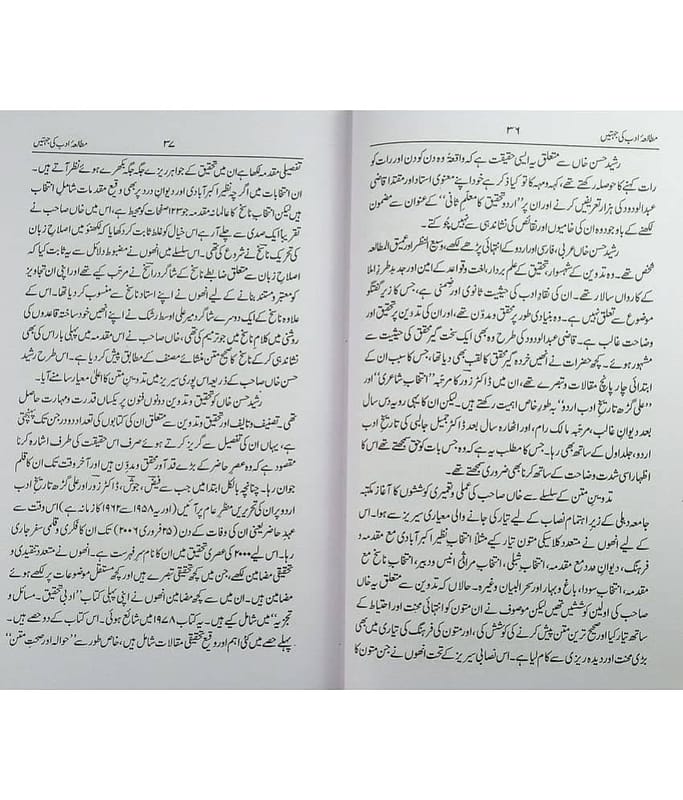 مطالعۂ ادب کی جہتیں
۳۶
رشید حسن خاں سے متعلق یہ ایسی حقیقت ہے کہ واقعۃً وہ دن کو دن اور رات کو
رات کہنے کا حوصلہ رکھتے تھے، کہہ ومہہ کا تو کیا ذکر ہے خود اپنے معنوی استاد اور مقتدا قاضی
عبدالودود کی ہزار تعریفیں کرنے اور ان پر ''اردو تحقیق کا معلمِ ثانی'' کے عنوان سے مضمون
لکھنے کے باوجود وہ ان کی خامیوں اور نقائص کی نشاندہی سے نہیں چوکتے۔
رشید حسن خاں عربی، فارسی اور اردو کے انتہائی پڑھے لکھے، وسیع النظر اور عمیق المطالعہ
شخص تھے۔ وہ تدوین کے شہسوار، تحقیق کے علم بردار، لغت و قواعد کے امین اور جدید طرزِ املا
کے کارواں سالار تھے۔ ان کی نقادِ ادب کی حیثیت ثانوی اور ضمنی ہے، جس کا زیرِ گفتگو
موضوع سے تعلق نہیں ہے۔ وہ بنیادی طور پر محقق و مدوّن تھے، اور ان کی تدوین پر تحقیق اور
وضاحت غالب ہے۔ قاضی عبدالودود کی طرح وہ بھی ایک سخت گیر محقق کی حیثیت سے
مشہور ہوئے۔ کچھ حضرات نے انھیں خردہ گیر محقق کا لقب بھی دیا تھا، جس کا سبب ان کے
ابتدائی چار پانچ مقالات و تبصرے تھے، ان میں ڈاکٹر زور کا مرتبہ ''انتخابِ شاعری'' اور
''علی گڑھ تاریخ ادب اردو'' بہ طورِ خاص اہمیت رکھتے ہیں۔ لیکن ان کا یہی رویہ دس سال
بعد دیوانِ غالب، مرتبہ مالک رام، اور اٹھارہ سال بعد ڈاکٹر جمیل جالبی کی تاریخ ادب
اردو، جلد اول کے ساتھ بھی رہا۔ جس کا مطلب یہ ہے کہ وہ جس بات کو حق سمجھتے تھے اس کا
اظہار اسی شدت و وضاحت کے ساتھ کرنا بھی ضروری سمجھتے تھے۔
تدوینِ متن کے سلسلے سے خاں صاحب کی عملی و تعمیری کوششوں کا آغاز مکتبہ
جامعہ دہلی کے زیرِ اہتمام نصاب کے لیے تیار کی جانے والی معیاری سیریز سے ہوا۔ اس
کے لیے انھوں نے متعدد کلاسکی متون تیار کیے مثلاً انتخاب نظیر اکبرآبادی مع مقدمہ و
فرہنگ، دیوانِ درد مع مقدمہ، انتخاب شبلی، انتخاب مراثی انیس و دبیر، انتخاب ناسخ مع
مقدمہ، انتخاب سودا، باغ و بہار اور سحر البیان وغیرہ۔ حالاں کہ تدوین سے متعلق یہ خاں
صاحب کی اولین کوششیں تھیں لیکن موصوف نے ان متون کو انتہائی محنت اور احتیاط کے
ساتھ تیار کیا اور صحیح ترین متن پیش کرنے کی کوشش کی، اور متون کی فرہنگ کی تیاری میں بھی
بڑی محنت اور دیدہ ریزی سے کام لیا ہے۔ اس نصابی سیریز کے تحت انھوں نے جن متون کا
۳۷
مطالعۂ ادب کی جہتیں
تفصیلی مقدمہ لکھا ہے ان میں تحقیق کے جواہر ریزے جگہ جگہ بکھرے ہوئے نظر آتے ہیں۔
ان انتخابات میں اگرچہ نظیر اکبرآبادی اور دیوانِ درد پر بھی وقیع مقدمات شامل ہیں
لیکن انتخاب ناسخ کا عالمانہ مقدمہ ۱۲۳ صفحات کو محیط ہے، اس میں خاں صاحب نے
تقریباً ایک صدی سے چلے آ رہے اس خیال کو غلط ثابت کر دکھایا کہ لکھنؤ میں اصلاحِ زبان
کی تحریک ناسخ نے شروع کی تھی۔ اس سلسلے میں انھوں نے مضبوط دلائل سے یہ ثابت کیا کہ
اصلاحِ زبان سے متعلق ضابطے ناسخ کے شاگرد راسخ نے مرتب کیے تھے اور اپنی ان تجاویز
کو معتبر و مستند بنانے کے لیے انھوں نے اپنے استاد ناسخ سے منسوب کر دیا تھا۔ اس کے
علاوہ ناسخ کے ایک دوسرے شاگرد میر علی اوسط رشک نے اپنے انھیں خود ساختہ قاعدوں کی
روشنی میں کلامِ ناسخ میں جو ترمیم کی تھی، خاں صاحب نے اس مقدمہ میں پہلی بار اس کی بھی
نشاندہی کر کے ناسخ کا صحیح متن منشائے مصنف کے مطابق پیش کر دیا ہے۔ اس طرح رشید
حسن خاں صاحب کے ذریعہ اس پوری سیریز میں تدوینِ متن کا اعلیٰ معیار سامنے آیا۔
رشید حسن خاں کو تحقیق و تدوین دونوں فنون پر یکساں قدرت و مہارت حاصل
تھی۔ تصنیف و تالیف اور تحقیق و تدوین سے متعلق ان کی کتابوں کی تعداد دو درجن تک پہنچتی
ہے، یہاں ان کی تفصیل سے گریز کرتے ہوئے صرف اس حقیقت کی طرف اشارہ کرنا
مقصود ہے کہ وہ عصرِ حاضر کے بڑے قد آور محقق و مدوّن ہیں اور آخر وقت تک ان کا قلم
جوان رہا۔ چنانچہ بالکل ابتدا میں جب سے فیض، جوش، ڈاکٹر زور اور علی گڑھ تاریخ ادب
اردو پر ان کی تحریریں منظرِ عام پر آئیں (اور یہ ۱۹۵۸ سے ۱۹۶۲ کا زمانہ ہے) اس وقت سے
عہدِ حاضر یعنی ان کی وفات کے دن (۲۵ فروری ۲۰۰۶) تک ان کا فکری و قلمی سفر جاری
رہا۔ اس لیے ۲۰۰۰ کی عصری تحقیق میں ان کا نام سرِ فہرست ہے۔ انھوں نے متعدد تنقیدی و
تحقیقی مضامین لکھے، جن میں کچھ تحقیقی تبصرے ہیں اور کچھ مستقل موضوعات پر لکھے ہوئے
مضامین ہیں۔ ان میں سے کچھ مضامین انھوں نے اپنی پہلی کتاب ''ادبی تحقیق ۔ مسائل و
تجزیہ'' میں شامل کیے ہیں۔ یہ کتاب ۱۹۷۸ میں شائع ہوئی۔ اس کتاب کے دو حصے ہیں۔
پہلے حصے میں کئی اہم اور وقیع تحقیقی مقالات شامل ہیں، خاص طور سے ''حوالہ اور صحتِ متن''